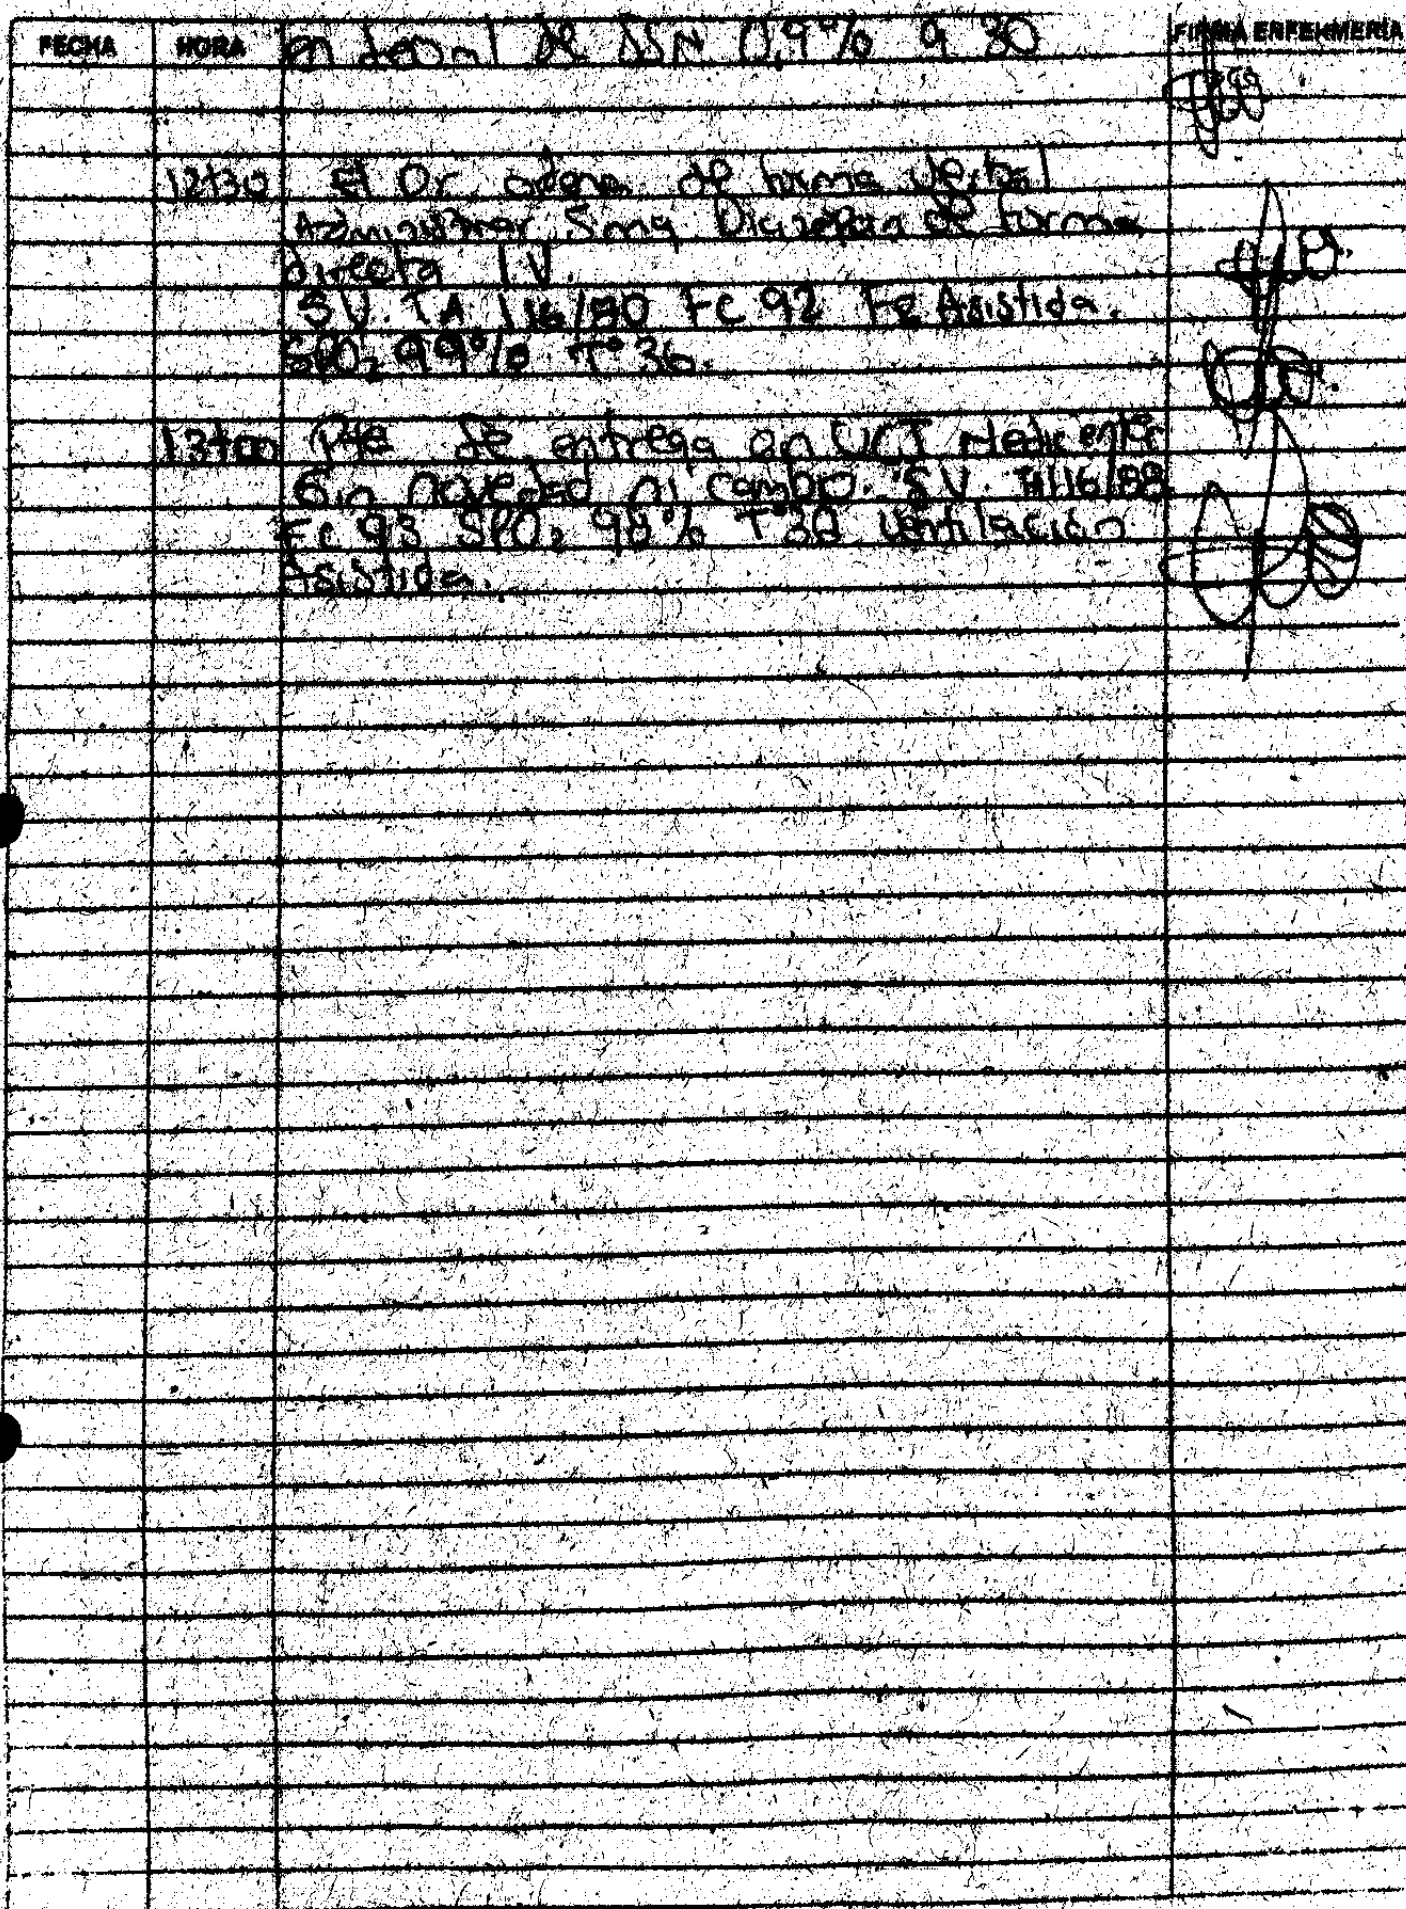 FECHA HORA FIRMA ENFERMERÍA
en ml de SSN 0,9% a 30
12+30 El Dr. ordena de forma verbal
Administrar 5mg Diazepan de forma
directa I.V.
S.V. TA 116/80 Fc 92 FR Asistida.
SPO2 99% T° 36.
13+00 Pte se entrega en UCI
Sin novedad ni cambio. S.V. TA 116/88
Fc 93 SPO2 98% T° Ventilación
Asistida.